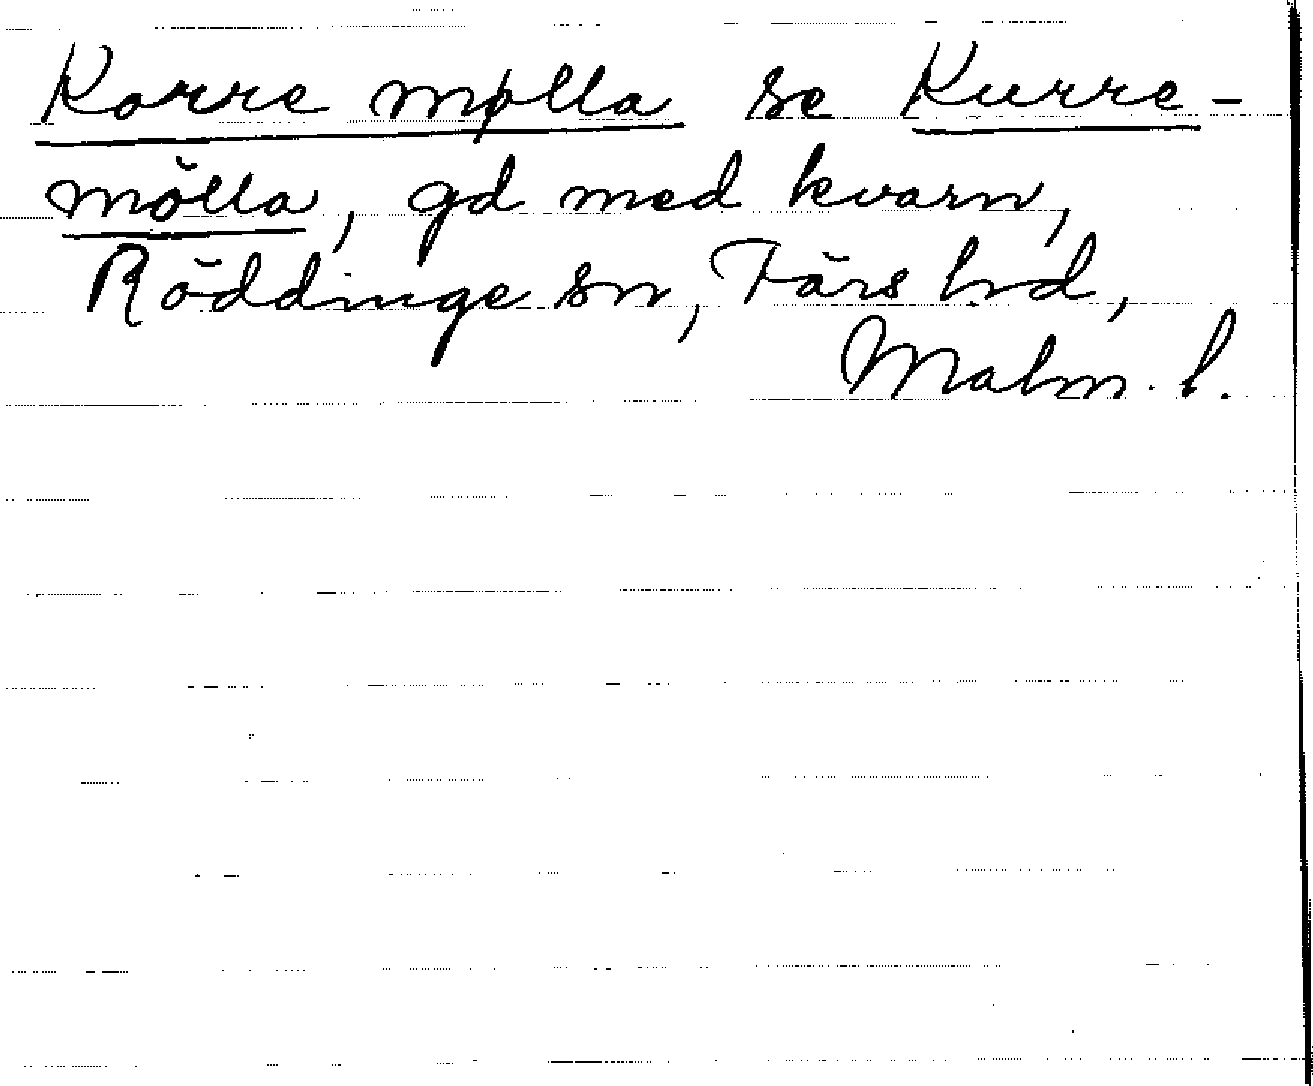 Korre mølla se Kurre-
mölla, gd med kvarn,
Röddinge sn, Färs hd,
Malm. l.